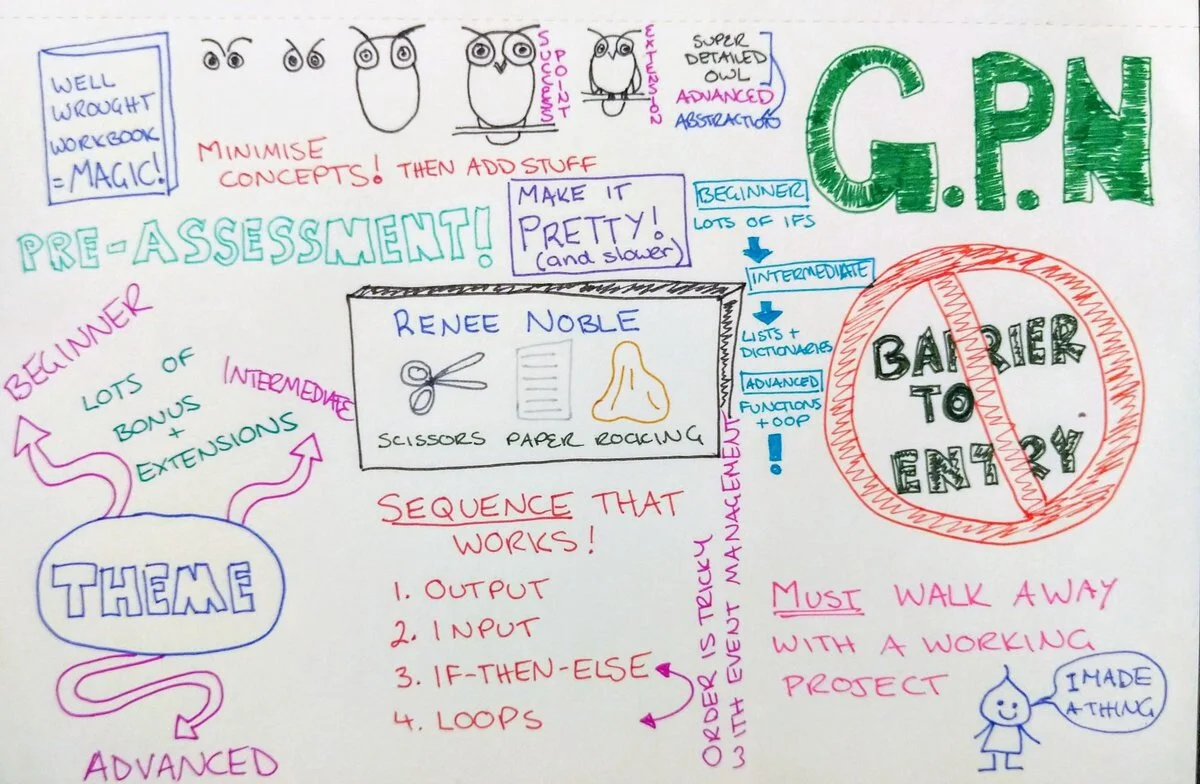 WELL
WROUGHT
WORKBOOK
= MAGIC!
SUCCESS
POINT
EXTENSION
SUPER
DETAILED
OWL
ADVANCED
ABSTRACTION
G.P.N
MINIMISE
CONCEPTS! THEN ADD STUFF
PRE-ASSESSMENT!
MAKE IT
PRETTY!
(and slower)
BEGINNER
LOTS OF IFS
INTERMEDIATE
LISTS +
DICTIONARIES
ADVANCED
FUNCTIONS
+ OOP
!
BARRIER
TO
ENTRY
RENEE NOBLE
SCISSORS PAPER ROCKING
BEGINNER
LOTS OF
BONUS
+
EXTENSIONS
INTERMEDIATE
THEME
ADVANCED
SEQUENCE THAT
WORKS!
1. OUTPUT
2. INPUT
3. IF-THEN-ELSE
4. LOOPS
ORDER IS TRICKY
WITH EVENT MANAGEMENT
MUST WALK AWAY
WITH A WORKING
PROJECT
I MADE
A THING